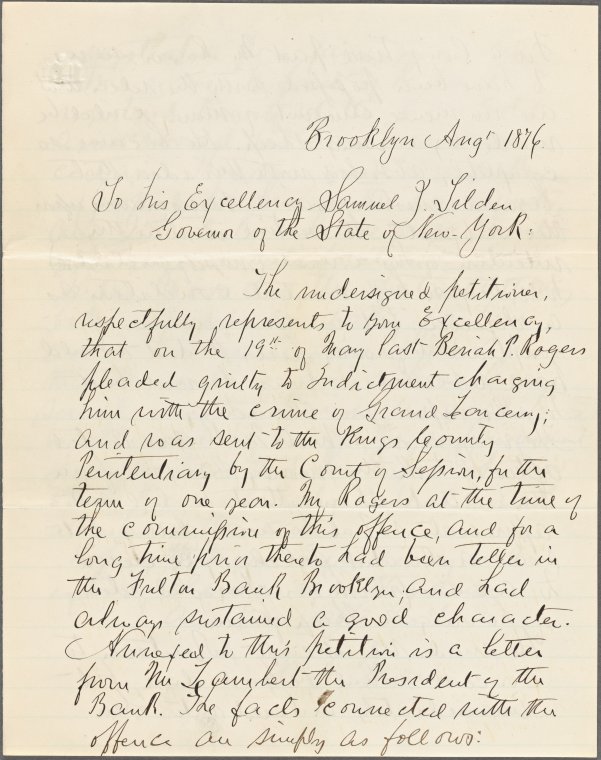 Brooklyn Augt 1876.
To his Excellency Samuel J. Tilden
Governor of the State of New-York:
The undersigned petitioner,
respectfully represents to your Excellency,
that on the 19th of May last Beriah P. Rogers
pleaded guilty to Indictment charging
him with the crime of Grand Larceny;
and was sent to the Kings County
Penitentiary by the Court of Session, for the
term of one year. Mr Rogers at the time of
the commission of this offence, and for a
long time prior thereto had been teller in
the Fulton Bank Brooklyn, and had
always sustained a good character.
Annexed to this petition is a letter
from Mr Lambert the President of the
Bank. The facts connected with the
offence are simply as follows: